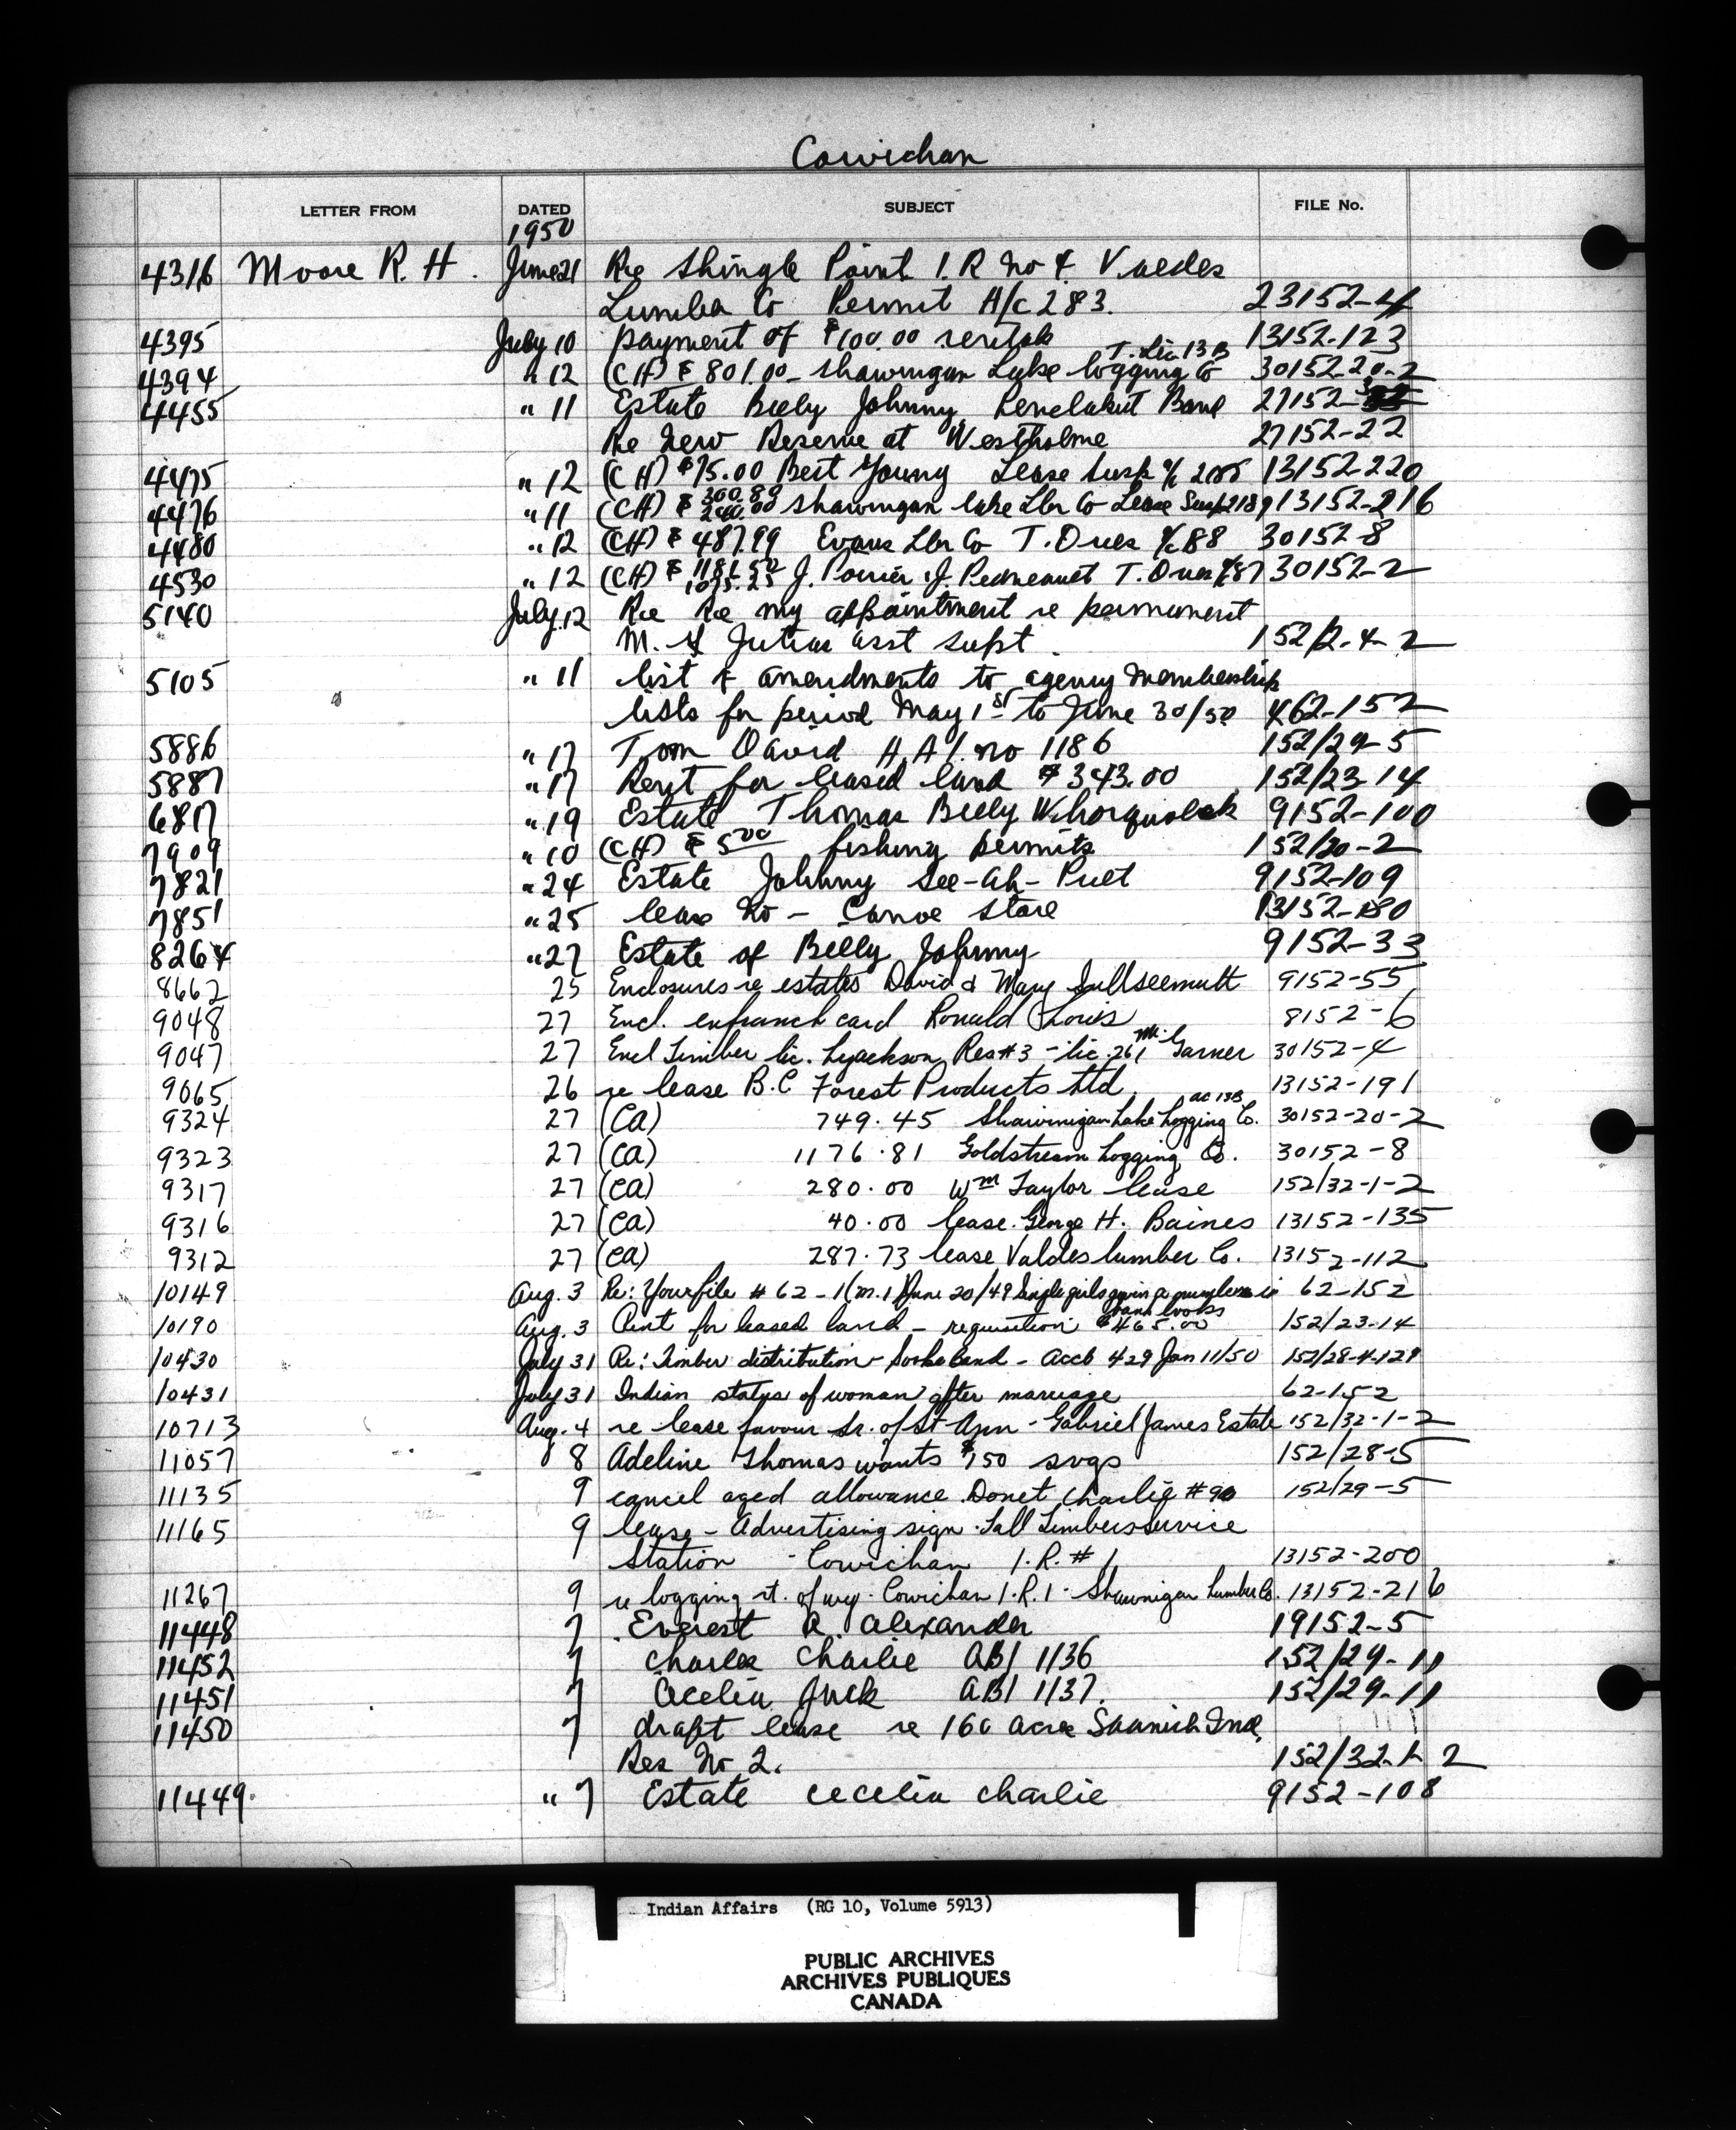 Cowichan
LETTER FROM DATED SUBJECT FILE No.
1950
4316 Moore R. H. June 21 Re Shingle Point I.R No 4 Valdes
Lumber Co Permit A/c 283. 23152-4
4395 July 10 payment of $100.00 rentals 13152-123
T. Lic 13 B
4394 " 12 (CH) $ 801.00 - Shawnigan Lake logging Co 30152-20-2
4455 " 11 Estate Billy Johnny Penelakut Band 27152-
Re New Reserve at Westholme 27152-22
4475 " 12 (CH) $75.00 Best Young Lease Susp a/c 13152-220
4476 " 11 (CH) $ 300.89 240.00 Shawnigan lake Lbr Co Lease Susp 2189 13152-216
4480 " 12 (CH) $ 487.99 Evans Lbr Co T. Dues a/c 88 30152-8
4530 " 12 (CH) $ 1181.50 1075.25 J. Poirier & J. T. Dues a/c 87 30152-2
5140 July 12 Re Re my appointment re permanent
M. asst supt. 152/2-4-2
5105 " 11 list of amendments to agency membership
lists for period May 1st to June 30/50 462-152
5886 " 17 Tom David A.A.I. no 1186 152/29-5
5887 " 17 Rent for leased land $343.00 152/23-14
6817 " 19 Estate Thomas Billy 9152-100
7909 " 10 (CH) $ 5.00 fishing permits 152/20-2
7821 " 24 Estate Johnny See-ah-Puet 9152-109
7851 " 25 lease No - Canoe store 13152-180
8264 " 27 Estate of Billy Johnny 9152-33
8662 25 Enclosures re estates David & Mary 9152-55
9048 27 Encl. enfranch card Ronald Louis 8152-6
9047 27 Encl Timber lic. Lyackson Res #3 - lic. 261 Mr. Garner 30152-4
9065 26 re lease B.C Forest Products Ltd. 13152-191
ac 13B
9324 27 (CA) 749.45 Shawnigan Lake Logging Co. 30152-20-2
9323 27 (CA) 1176.81 Goldstream Logging Co. 30152-8
9317 27 (CA) 280.00 Wm Taylor lease 152/32-1-2
9316 27 (CA) 40.00 lease. George H. Baines 13152-135
9312 27 (CA) 287.73 lease Valdes lumber Co. 13152-112
10149 Aug. 3 Re: Your file # 62-1 (M.1) June 20/49 Single girls 62-152
bank books
10190 Aug. 3 Rent for leased land - requisition $465.00 152/23-14
10430 July 31 Re: Timber distribution - Sooke band - Acct 429 Jan 11/50 152/28-4-129
10431 July 31 Indian status of woman after marriage 62-152
10713 Aug. 4 re lease favour Sr. of St Ann - Gabriel James Estate 152/32-1-2
11057 8 Adeline Thomas wants $150 svgs 152/28-5
11135 9 cancel aged allowance Donet Charlie #90 152/29-5
11165 9 lease - Advertising sign. Tall Timbers Service
Station - Cowichan I.R. # 1 13152-200
11267 9 re logging rt. of way - Cowichan I.R. 1 - Shawnigan Lumber Co. 13152-216
11448 7 Everest A. Alexander 19152-5
11452 7 Charlie Charlie ABI 1136 152/29-11
11451 7 Cecelia Jack ABI 1137. 152/29-11
11450 7 draft lease re 160 acre Saanich Ind.
Res No 2. 152/32-1-2
11449. " 7 Estate Cecelia Charlie 9152-108
Indian Affairs (RG 10, Volume 5913)
PUBLIC ARCHIVES
ARCHIVES PUBLIQUES
CANADA